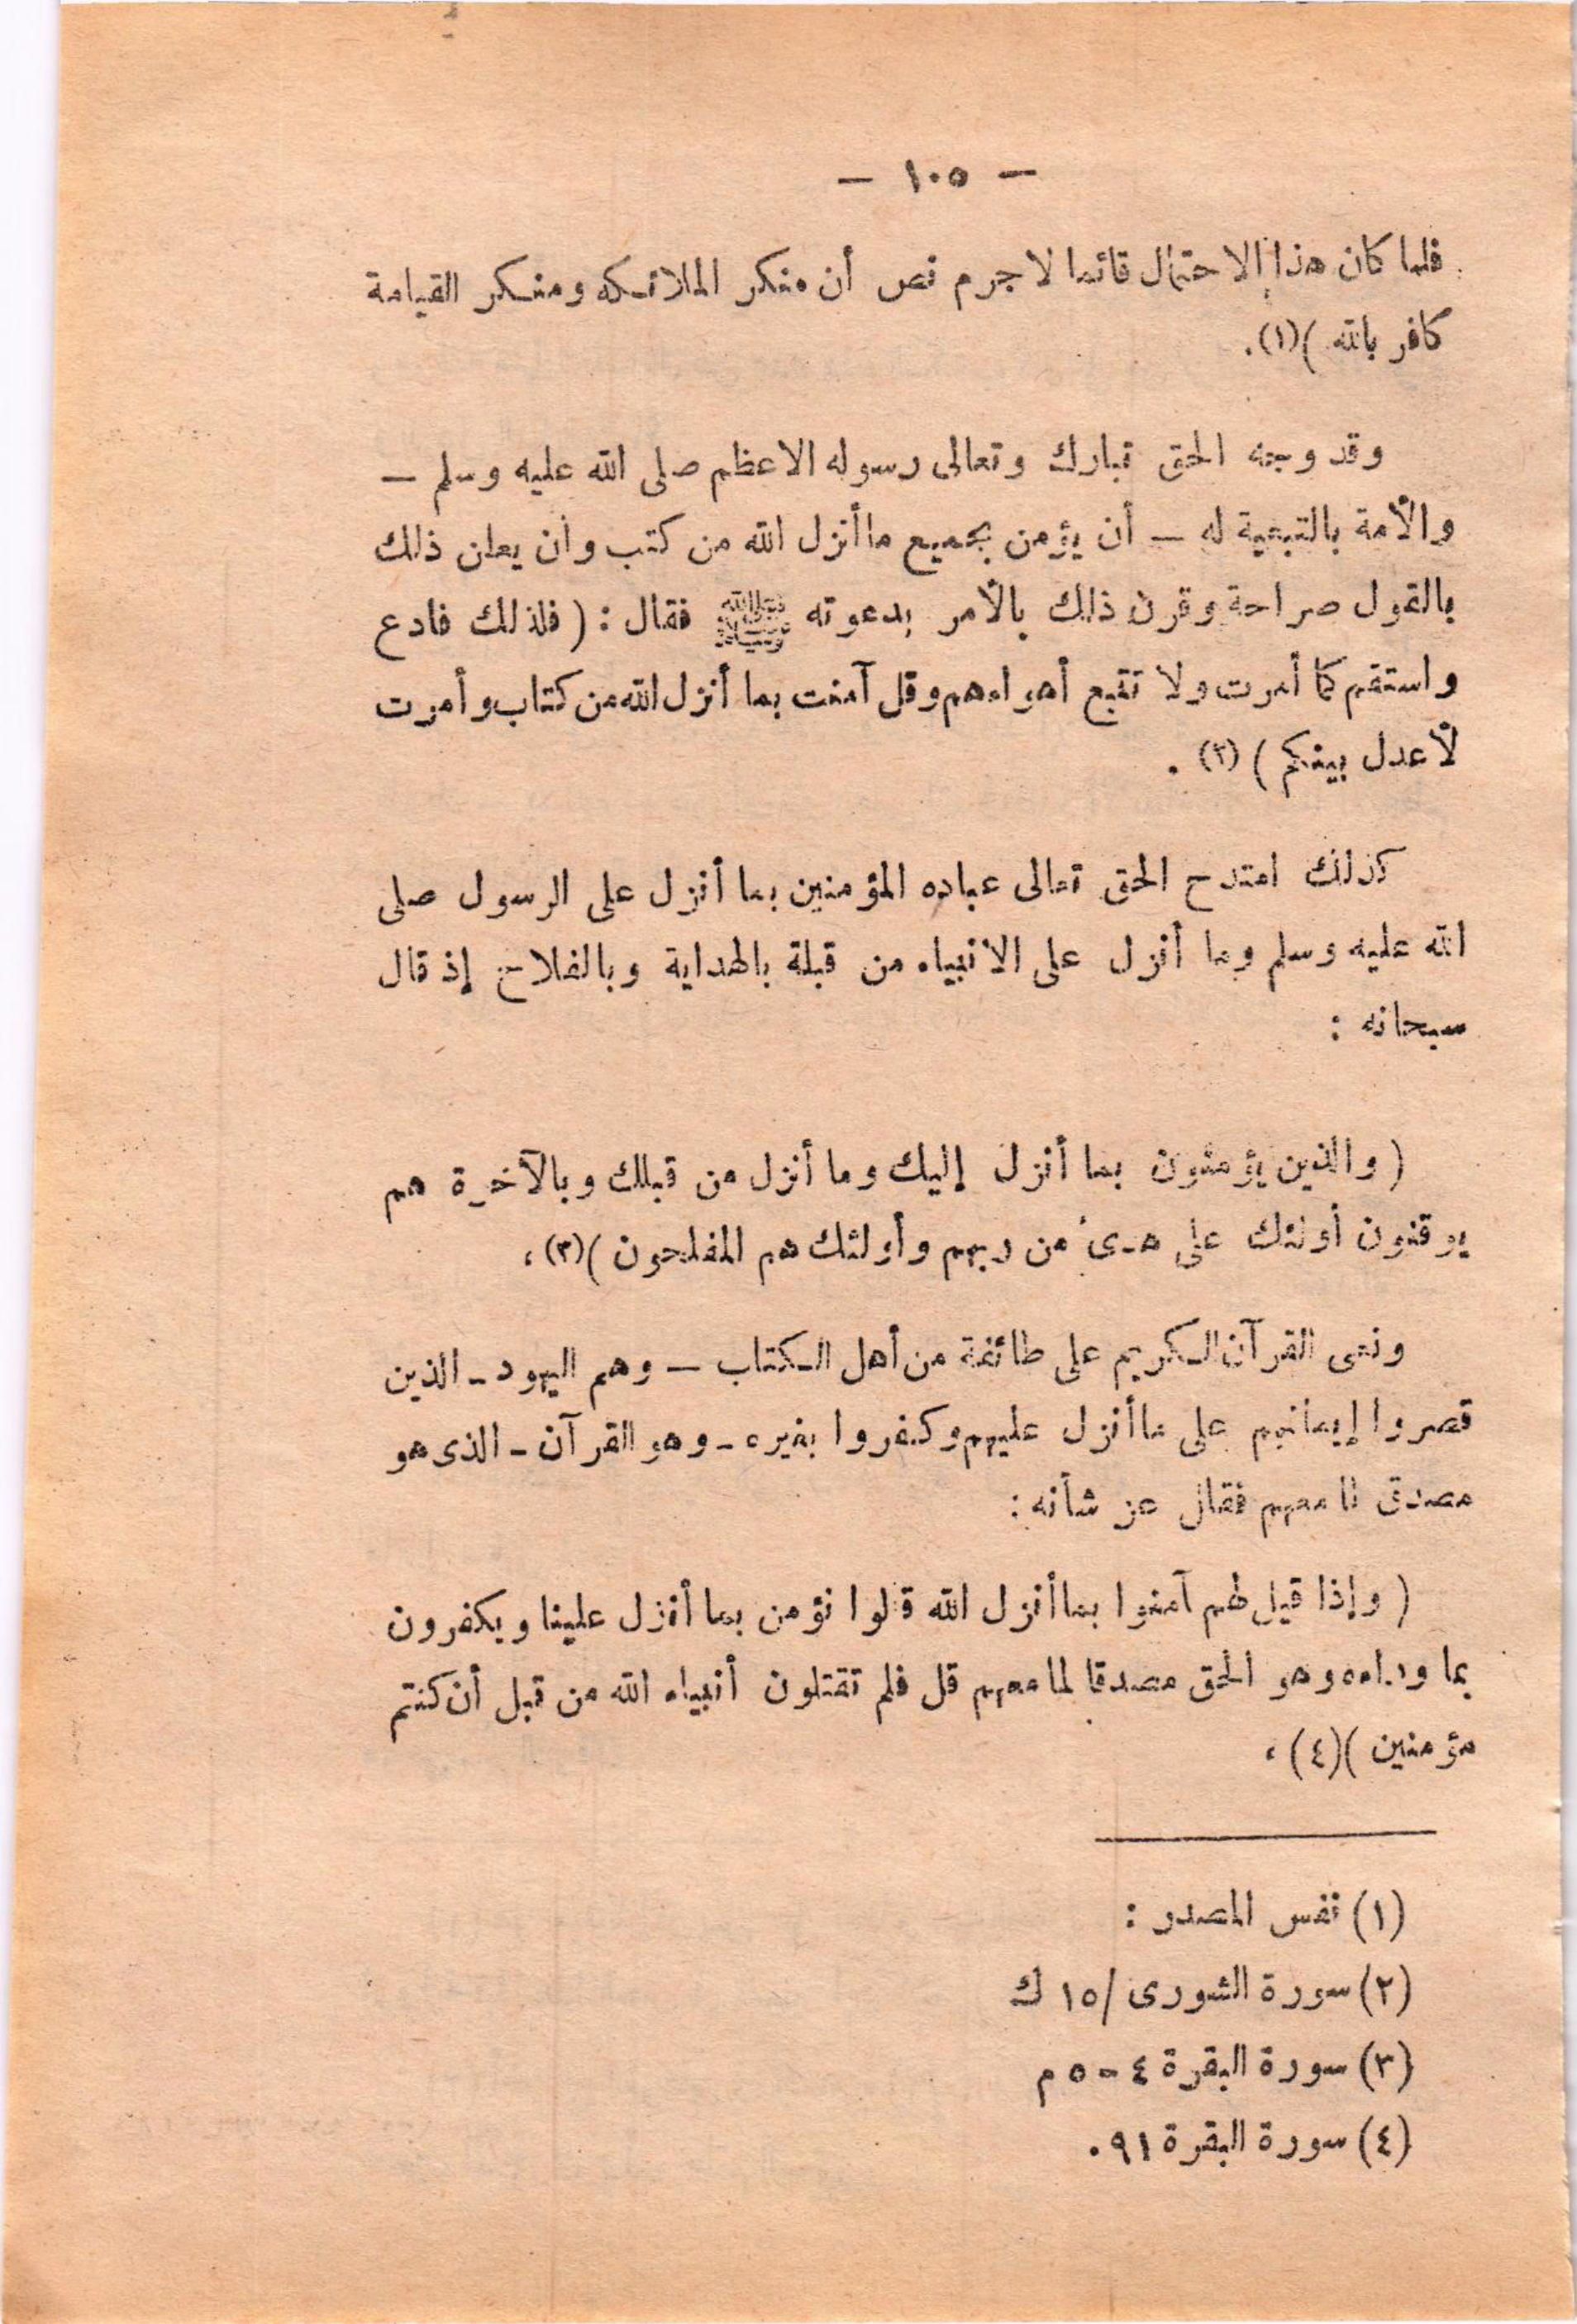 — ١٠٥ —
فلما كان هذا الاحتمال قائما لا جرم نص أن منكر الملائكه ومنكر القيامة
كافر بالله )(١).
وقد وجه الحق تبارك وتعالى رسوله الاعظم صلى الله عليه وسلم —
والأمة بالتبعية له — أن يؤمن بجميع ما أنزل الله من كتب وأن يعلن ذلك
بالقول صراحة وقرن ذلك بالأمر بدعوته ﷺ فقال : ( فلذلك فادع
واستقم كما أمرت ولا تتبع أهواءهم وقل آمنت بما أنزل الله من كتاب وأمرت
لأعدل بينكم ) (٢) .
كذلك امتدح الحق تعالى عباده المؤمنين بما أنزل على الرسول صلى
الله عليه وسلم وما أنزل على الأنبياء من قبلة بالهداية وبالفلاح إذ قال
سبحانه :
( والذين يؤمنون بما أنزل إليك وما أنزل من قبلك وبالآخرة هم
يوقنون أولئك على هدى من ربهم وأولئك هم المفلحون )(٣) ،
ونعى القرآن الكريم على طائفة من أهل الكتاب — وهم اليهود - الذين
قصروا إيمانهم على ما أنزل عليهم وكفروا بغيره - وهو القرآن - الذى هو
مصدق لما معهم فقال عز شأنه :
( وإذا قيل لهم آمنوا بما أنزل الله قالوا نؤمن بما أنزل علينا ويكفرون
بما وراءه وهو الحق مصدقا لما معهم قل فلم تقتلون أنبياء الله من قبل أن كنتم
مؤمنين )(٤) ،
(١) نفس المصدر :
(٢) سورة الشورى /١٥ ك
(٣) سورة البقرة ٤ - ٥ م
(٤) سورة البقرة ٩١ .